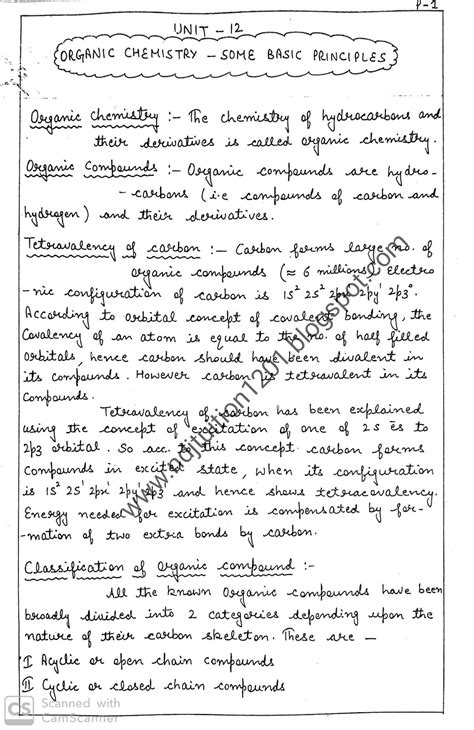 P-1
UNIT - 12
ORGANIC CHEMISTRY - SOME BASIC PRINCIPLES
Organic chemistry :- The chemistry of hydrocarbons and
their derivatives is called organic chemistry.
Organic Compounds :- Organic compounds are hydro-
-carbons (i.e compounds of carbon and
hydrogen) and their derivatives.
Tetravalency of carbon :- Carbon forms large no. of
organic compounds (≈ 6 millions). Electro
-nic configuration of carbon is 1s² 2s² 2px¹ 2py¹ 2p3⁰.
According to orbital concept of covalent bonding, the
Covalency of an atom is equal to the no. of half filled
orbitals, hence carbon should have been divalent in
its compounds. However carbon is tetravalent in its
Compounds.
Tetravalency of carbon has been explained
using the concept of excitation of one of 2s ēs to
2p3 orbital. So acc. to this concept carbon forms
Compounds in excited state, when its configuration
is 1s² 2s¹ 2px¹ 2py¹ 2p3¹ and hence shows tetracovalency.
Energy needed for excitation is compensated by for-
-mation of two extra bonds by carbon.
Classification of Organic compound :-
All the known Organic compounds have been
broadly divided into 2 categories depending upon the
nature of their carbon skeleton. These are —
I Acyclic or open chain compounds
II Cyclic or closed chain compounds
CS Scanned with
CamScanner